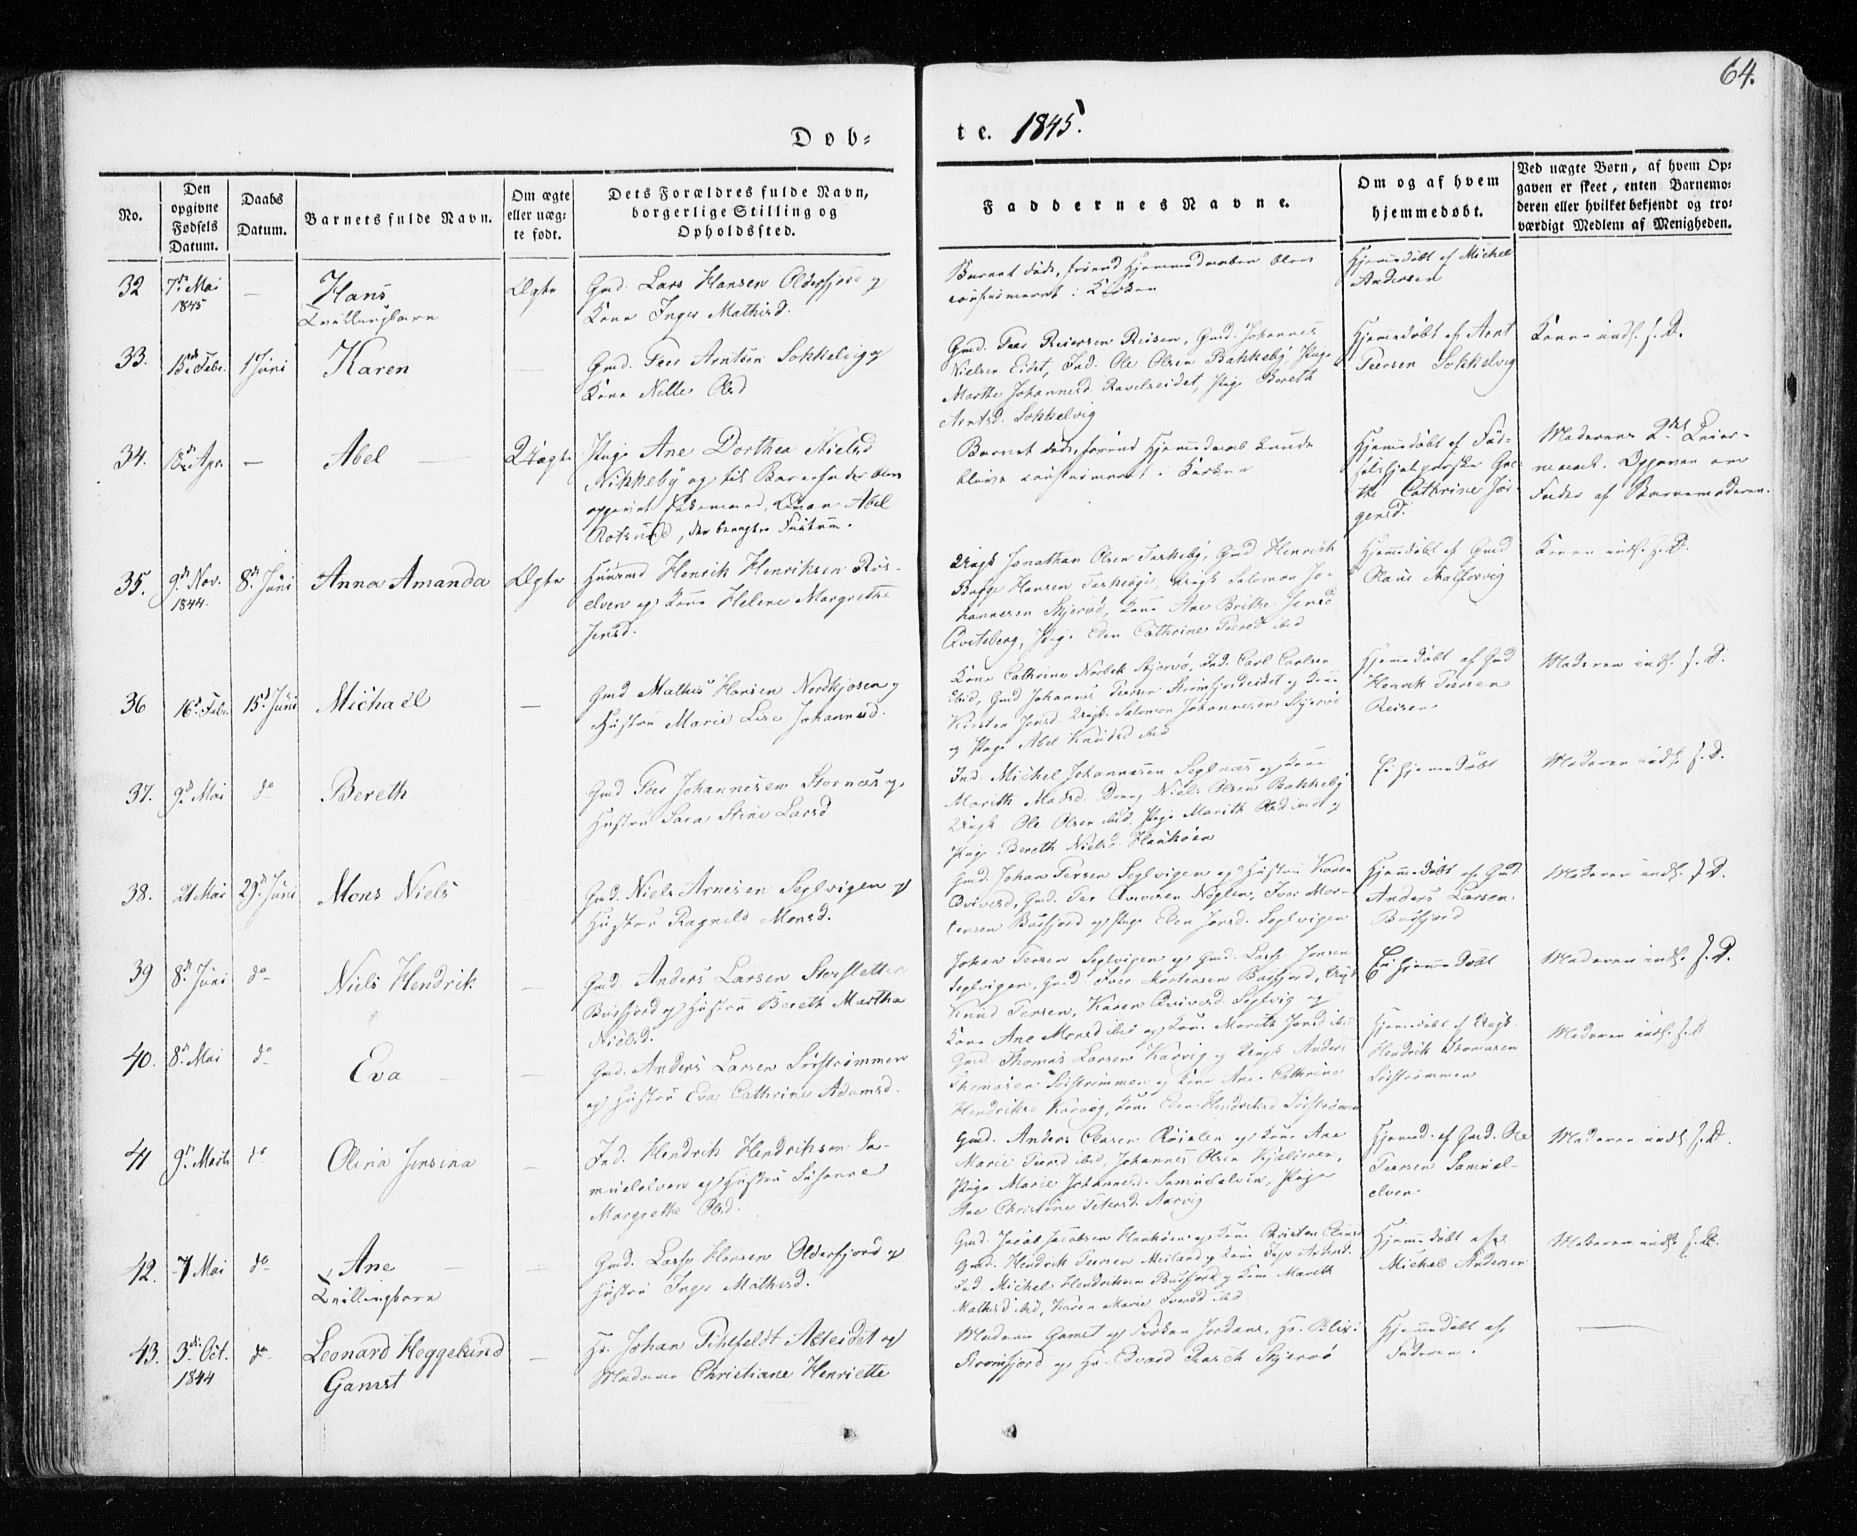 64.
Døb=
te. 1845.
No.
Den opgivne Fødsels Datum.
Daabs Datum.
Barnets fulde Navn.
Om ægte eller uæg= te født.
Dets Forældres fulde Navn, borgerlige Stilling og Opholdssted.
Faddernes Navne.
Om og af hvem hjemmedøbt.
Ved uægte Børn, af hvem Op= gaven er skeet, enten Barnemo= deren eller hvilket bekjendt og tro= værdigt Medlem af Menigheden.
32 7de Mai 1845 — Hans Tvillingbarn Ægte
Gmd. Lars Hansen Olderfjord og
Kone Inger Mathisd.
Barnet døde, førend Hjemmedaaben blev
confirmeret i Kirken
Hjemmedøbt af Michel
Andersen
33. 15de Febr. 1 Juni Karen —
Gmd. Peer Arntsen Sokkelvig og
Kone Nille Olsd
Gmd. Peer Reiersen Reisen, Gmd. Johannes
Nielsen Eidet, Ind. Ole Olsen Bakkeby, Pige
Marthe Johannesd. Ravelseidet, Pige Bereth
Arntsd. Sokkelvig
Hjemmedøbt af Arnt
Peersen Sokkelvig
Konen indl. s. D.
34. 18de Apr. — Abel — Uægte
Pige Ane Dorthea Nielsd
Nikkeby og til Barnefader blev
opgivet Abel
Rotsund,
Barnet døde, førend Hjemmedaab kunde
blive confirmeret i Kirken
Hjemmedøbt af Jød-
Gre-
the Cathrine Jør-
gensd.
Moderens 2det Leier-
maal. Opgaven om
Fader af Barnemoderen.
35. 9de Nov. 1844. 8de Juni Anna Amanda Ægte
Huusmd Henrik Henriksen Rør-
elven og Kone Helene Margrethe
Jensd.
Ungk Jonathan Olsen Taskeby, Gmd Henrich
Hansen Taskeby, Ungk Salomon Jo-
hannesen Skjervø, Kone Ane Brithe Jensd
Qviteberg, Pige Elen Cathrine Peersd ibid
Hjemmedøbt af Gmd
Olaus
Konen indl. s. D.
36 16d Febr. 15d Juni Michael —
Gmd Mathis Hansen Nordkjosen og
Hustru Marie Lise Johannesd.
Kone Cathrine Skjervø, Ind. Carl Carlsen
ibid, Gmd Johannes Peersen Strømfjordeidet og Kone
Kirsten Jensd. Ungk. Salomon Johannesen Skjervø
og Pige Abel Knudsd ibid
Hjemmedøbt af Gmd
Henrik Peersen
Reisen
Moderen indl. s. D.
37. 9d Mai do Bereth
Gmd Peer Johannesen Stornæs og
Hustru Sara Stine Larsd
Ind. Michel Johannesen Seglnæs og Kone
Marith Madsd. Dreng Niels Olsen Bakkeby
Ungk. Ole Olsen ibid. Pige Marith Olsd ibid og
Pige Bereth Nielsd. Haukøen
Ei hjemmedøbt
Moderen indl. s. D.
38. 21 Mai 29d Juni Mons Niels
Gmd. Niels Arnesen Seglvigen og
Hustru Ragnild Monsd.
Gmd. Johan Persen Seglvigen og Hustru Karen
Qvivesd, Gmd. Per Qvivesen Nøglen, Iver Mor-
tensen Burfjord og Pige Elen Jonsd. Seglvigen
Hjemmedøbt af Gmd
Anders Larsen
Burfjord
Moderen indl. s. D.
39 8de Juni do Niels Hendrik —
Gmd. Anders Larsen Storsletten
Burfjord og Hustru Bereth Martha
Nielsd.
Johan Persen Seglvigen og Gmd. Lars Jonsen
Seglvigen, Gmd Iver Mortensen Burfjord, Ungk
Knud Persen, Karen Qvivesd. Seglvig og
Kone Ane Monsd ibid og Kone Marith Jonsd ibid
Ei hjemmedøbt
Moderen indl. s. D.
40. 8de Mai do Eva —
Gmd. Anders Larsen Sørstrømmen
og Hustru Eva Cathrine Adamsd.
Gmd Thomas Larsen Karvig og Ungk Anders
Thomasen Sørstrømmen og Kone Ane Cathrine
Hendriksd Karvig, Kone Elen Hendriksd Sørstrømmen
Hjemmedøbt af Ungk.
Hendrik Thomasen
Sørstrømmen
Moderen indl. s. D
41 9d Marts do Olina Jensina —
Ind. Hendrik Hendriksen Sa-
muelelven og Hustru Susanne
Margrethe Olsd.
Gmd. Anders Clasen Røielen og Kone Ane
Marie Peersd ibid, Johannes Olsen
Pige Marie Johannesd. Samuelelven, Pige
Ane Christine Petersd. Aarvig
Hjemmed. af Gmd. Ole
Peersen Samuel-
elven
Moderen indl. s. D.
42. 7 Mai do Ane Tvillingbarn —
Gmd. Lars Hansen Olderfjord og
Hustru Inger Mathisd.
Gmd. Jacob Jacobsen Haukøen og Kone Christen Clausd
Gmd. Hendrik Peersen Meiland og Kone Inger Andersd.
Ind. Michel Hendriksen Burfjord og Kone Marith
Mathisd ibid, Karen Marie Iversd ibid.
Hjemmedøbt af
Michel Andersen
Moderen indl. s. D.
43. 3de Oct. 1844 do Leonard Heggelund Gamst —
Hr. Johan Pihlfeldt Alteidet og
Madame Christiane Henriette
Madame Gamst og Frøken Jordans, Hr. Blix i
Strømfjord og Hr. Edvard Rasch Skjervø
Hjemmedøbt af
Faderen.
—